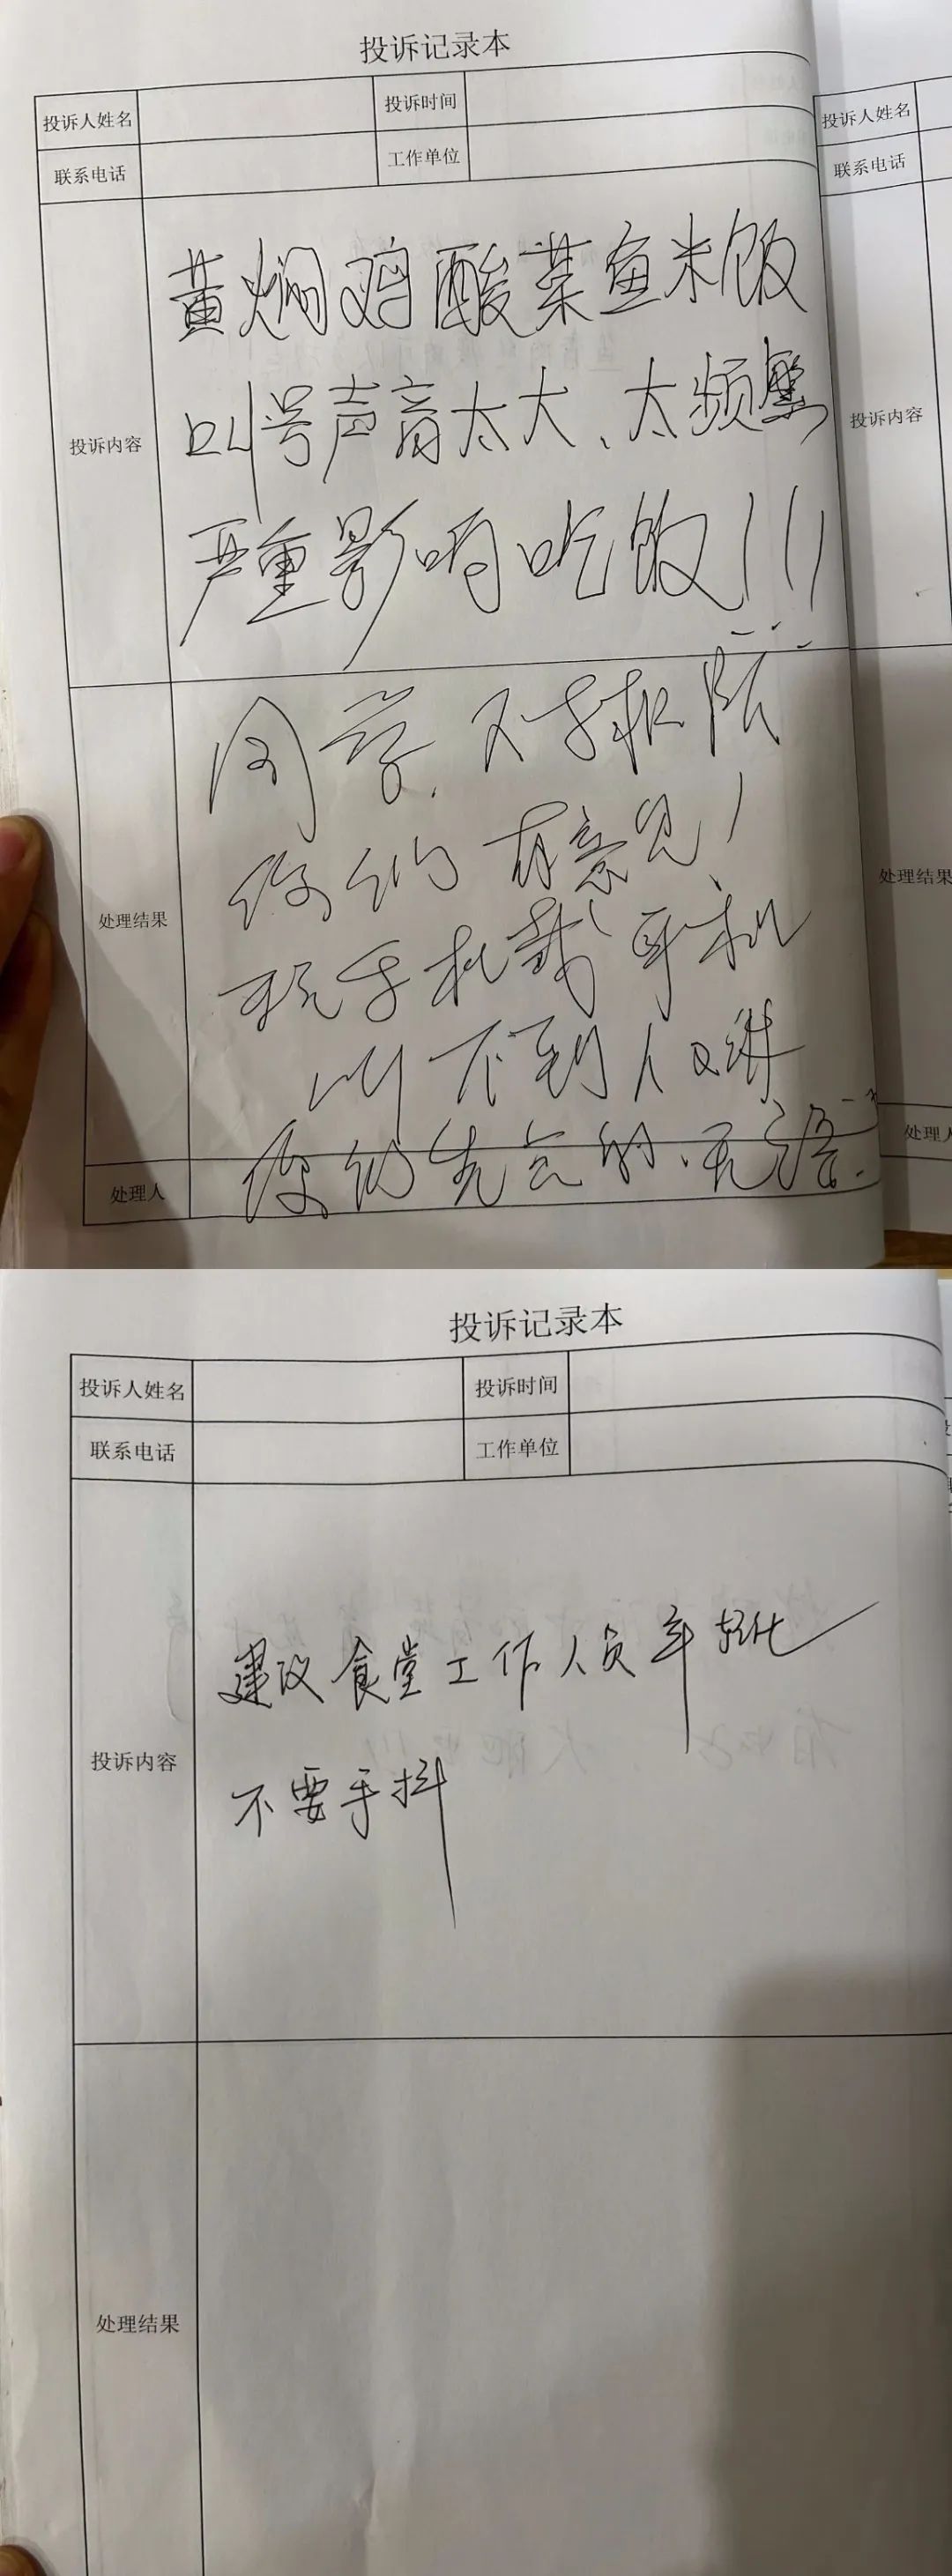 投诉记录本
投诉人姓名 投诉时间
联系电话 工作单位
投诉内容
黄焖鸡酸菜鱼米饭
叫号声音太大、太频繁
严重影响吃饭!!!
处理结果
同学,又喜排队
你们有意见!
玩手机戴耳机
叫不到人又讲
你们先点的、无语…
处理人
投诉人姓名
联系电话
投诉内容
处理结果
处理人
投诉记录本
投诉人姓名 投诉时间
联系电话 工作单位
投诉内容
建议食堂工作人员年轻化
不要手抖
处理结果